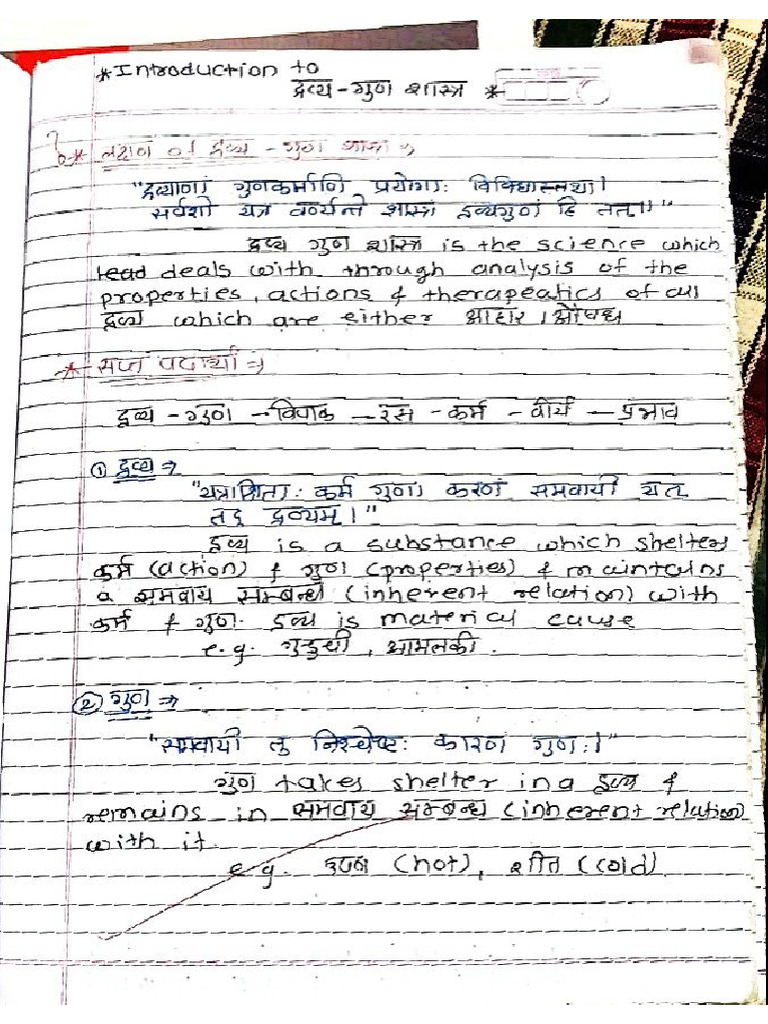 *Introduction to
द्रव्य-गुण शास्त्र *
* लक्षण of द्रव्य - गुण शास्त्र :→
"द्रव्याणां गुणकर्माणि प्रयोगाः विविधास्तथा।
सर्वशो यत्र वर्ण्यन्ते शास्त्रं द्रव्यगुणं हि तत्॥"
द्रव्य गुण शास्त्र is the science which
lead deals with through analysis of the
properties, actions & therapeatics of all
द्रव्य which are either आहार । औषध
* सप्त पदार्था :→
द्रव्य - गुण - विपाक - रस - कर्म - वीर्य - प्रभाव
① द्रव्य →
"यत्राश्रिताः कर्म गुणाः कारणं समवायी यत्
तद् द्रव्यम्।"
द्रव्य is a substance which shelters
कर्म (action) & गुण (properties) & maintains
a समवाय सम्बन्ध (inherent relation) with
कर्म & गुण. द्रव्य is material cause
e.g. गुडुची, आमलकी.
② गुण →
"समवायी तु निश्चेष्टः कारणं गुणः।"
गुण takes shelter in a द्रव्य &
remains in समवाय सम्बन्ध (inherent relation)
with it
e.g. उष्ण (hot), शीत (cold)